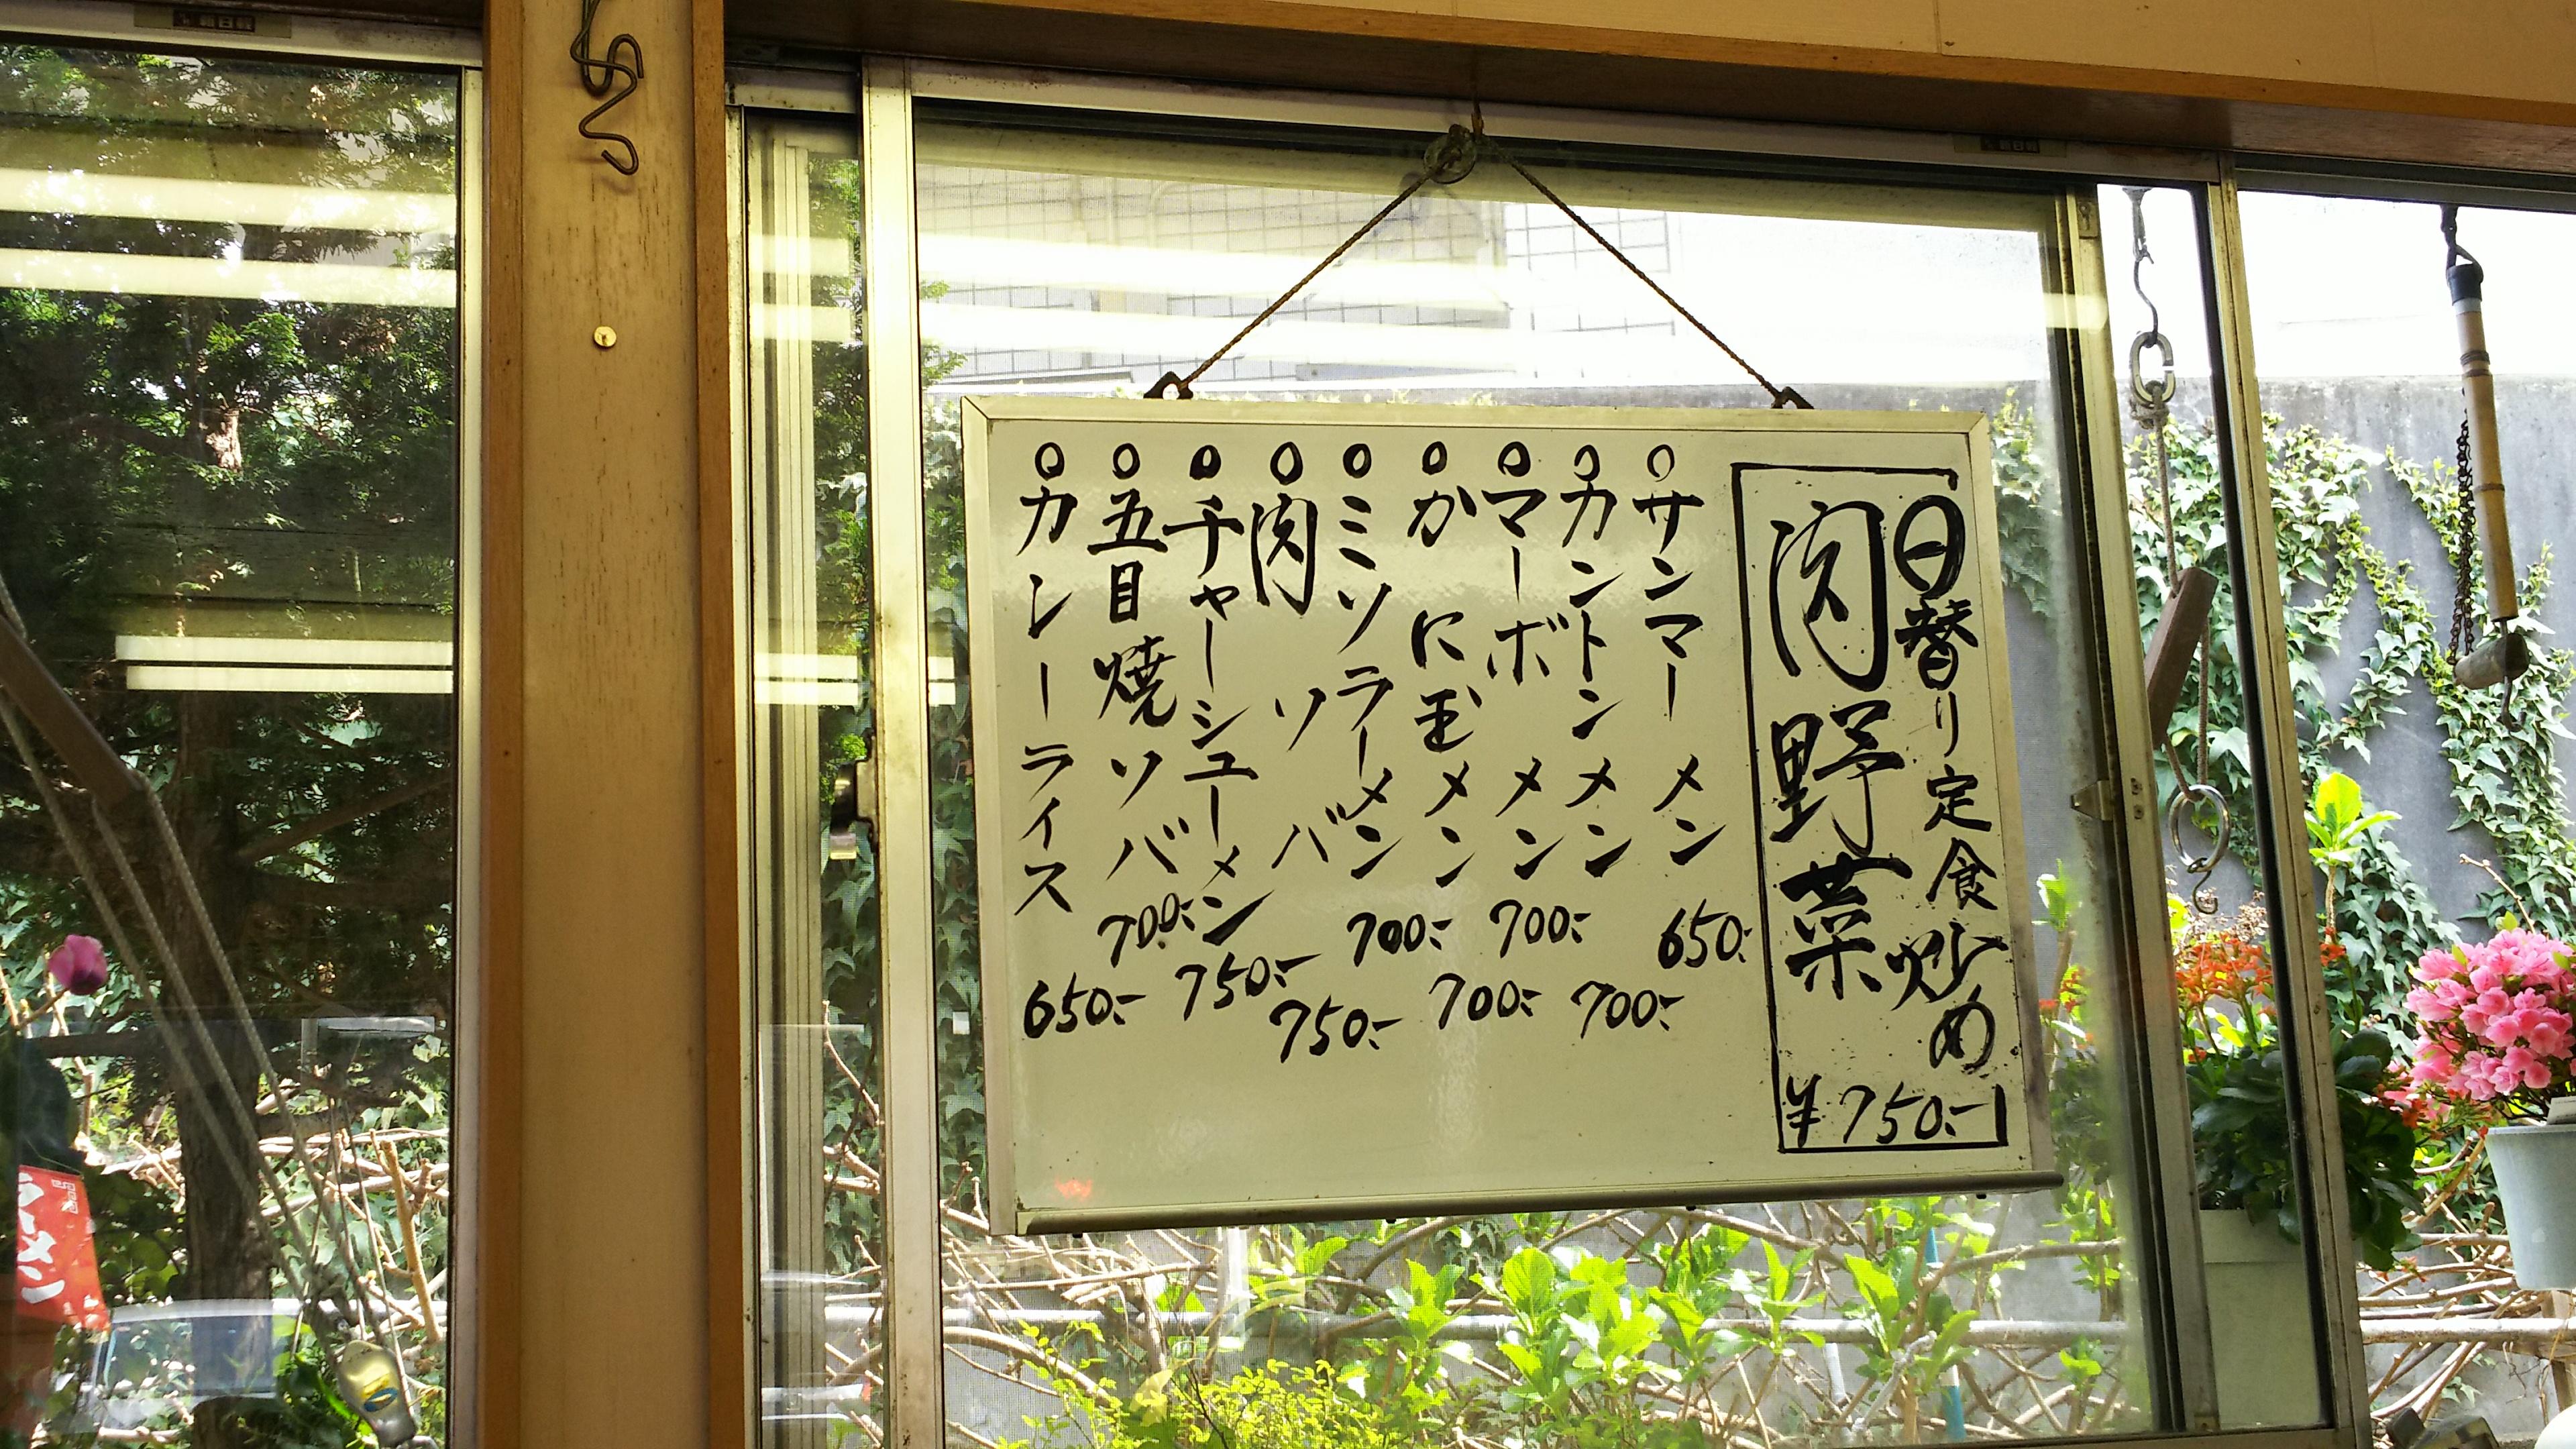 日替り定食
肉野菜炒め
¥750.-
○サンマーメン 650.-
○カントンメン 700.-
○マーボメン 700.-
○かに玉メン 700.-
○ミソラーメン 700.-
○肉ソバ 750.-
○チャーシューメン 750.-
○五目焼ソバ 700.-
○カレーライス 650.-
ラーメン